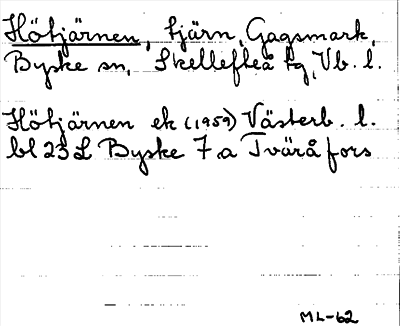 Hötjärnen, tjärn, Gagsmark,
Byske sn, Skellefteå tg, Vb. l.
Hötjärnen ek (1959) Västerb. l.
bl 23 L Byske 7.a Tväråfors
ML-62